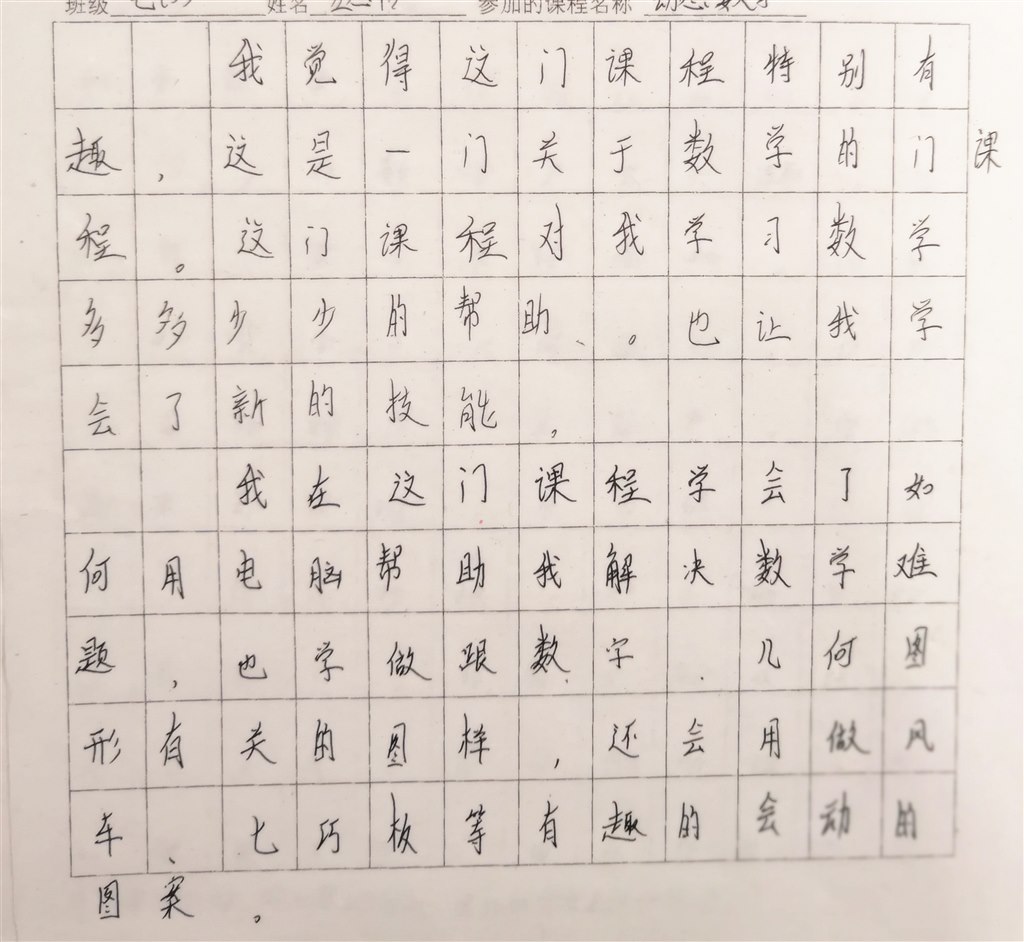 班级 七 姓名 参加的课程名称 动态数学
我觉得这门课程特别有
趣，这是一门关于数学的门课
程。这门课程对我学习数学
多多少少的帮助、。也让我学
会了新的技能，
我在这门课程学会了如
何用电脑帮助我解决数学难
题，也学做跟数字、几何图
形有关的图样，还会用做风
车、七巧板等有趣的会动的
图案。